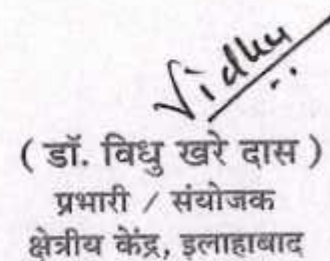 Vidhu
( डॉ. विधु खरे दास )
प्रभारी / संयोजक
क्षेत्रीय केंद्र, इलाहाबाद